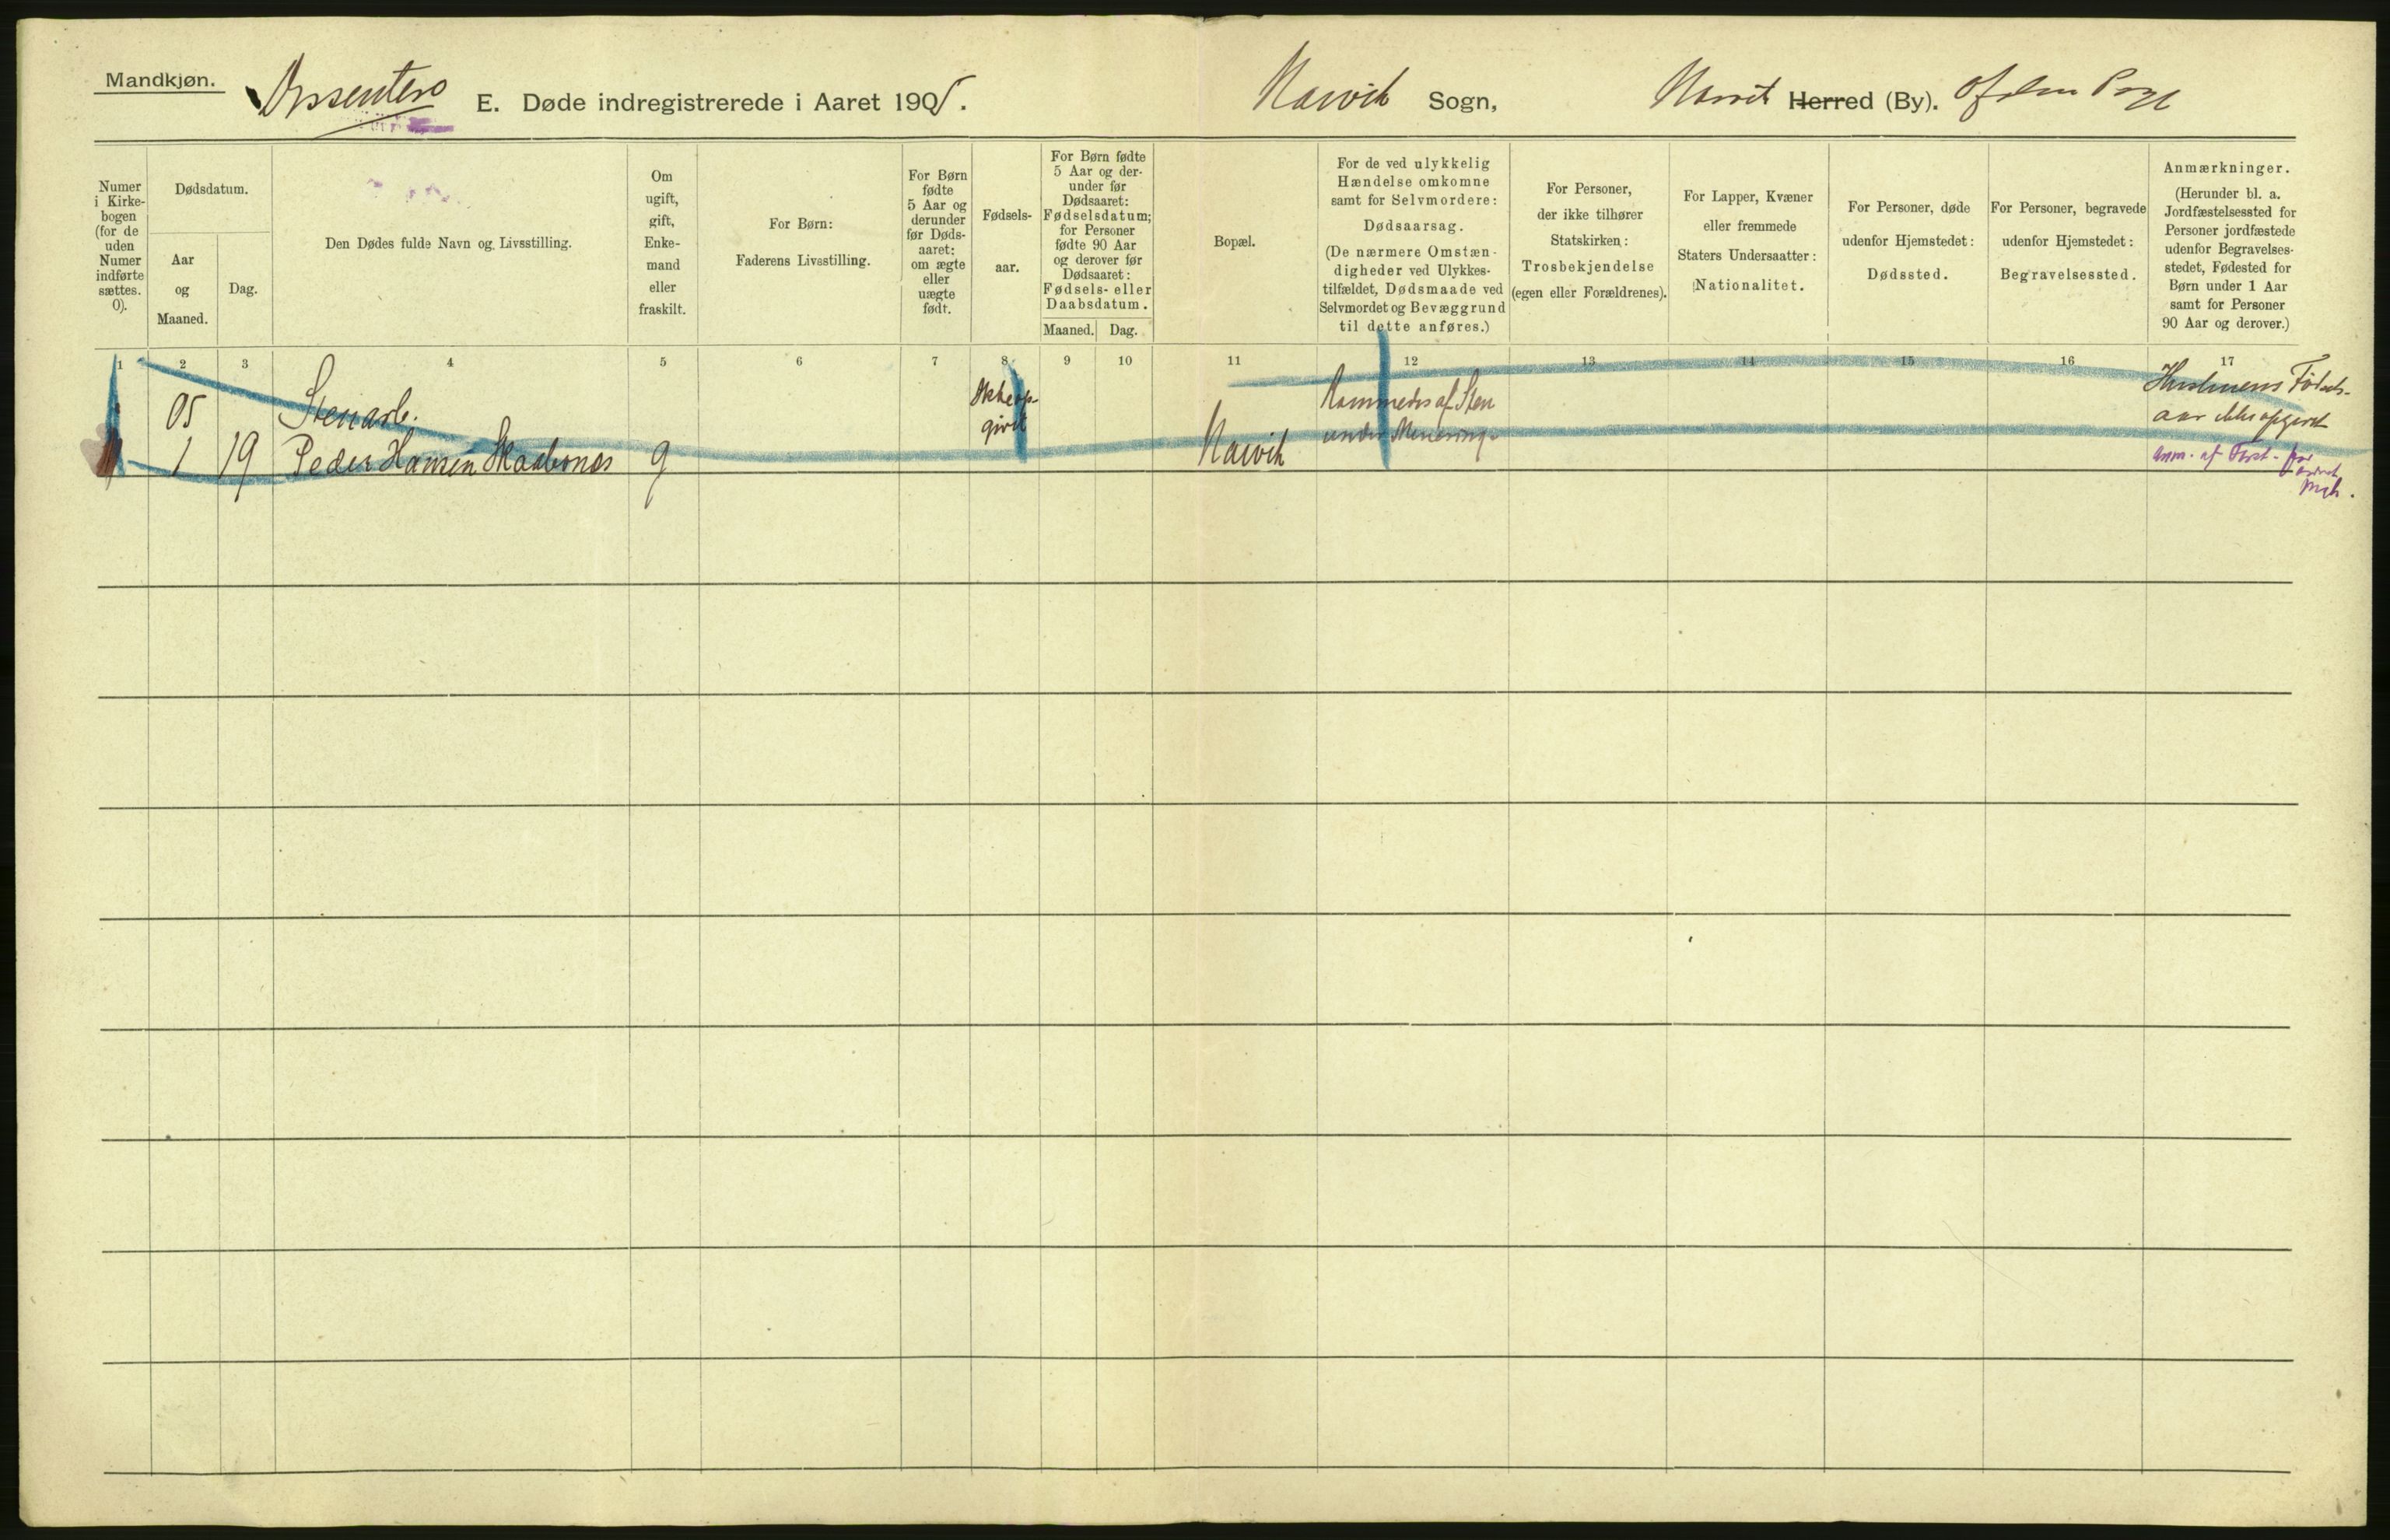 Mandkjøn.
Dissentere E. Døde indregistrerede i Aaret 1905. Narvik Sogn, Narvik Herred (By). Ofoten
Numer i Kirkebogen (for de uden Numer indførte sættes. 0).
Dødsdatum.
Aar og Maaned.
Dag.
Den Dødes fulde Navn og Livsstilling.
Om ugift, gift, Enkemand eller fraskilt.
For Børn: Faderens Livsstilling.
For Børn fødte 5 Aar og derunder før Dødsaaret: om ægte eller uægte født.
Fødselsaar.
For Børn fødte 5 Aar og derunder før Dødsaaret: Fødselsdatum; for Personer fødte 90 Aar og derover før Dødsaaret: Fødsels- eller Daabsdatum.
Maaned. Dag.
Bopæl.
For de ved ulykkelig Hændelse omkomne samt for Selvmordere: Dødsaarsag. (De nærmere Omstændigheder ved Ulykkestilfældet, Dødsmaade ved Selvmordet og Bevæggrund til dette anføres.)
For Personer, der ikke tilhører Statskirken: Trosbekjendelse (egen eller Forældrenes).
For Lapper, Kvæner eller fremmede Staters Undersaatter: Nationalitet.
For Personer, døde udenfor Hjemstedet: Dødssted.
For Personer, begravede udenfor Hjemstedet: Begravelsessted.
Anmærkninger. (Herunder bl. a. Jordfæstelsessted for Personer jordfæstede udenfor Begravelsesstedet, Fødested for Børn under 1 Aar samt for Personer 90 Aar og derover.)
1 2 3 4 5 6 7 8 9 10 11 12 13 14 15 16 17
05 Stenarb. Ikke op- Rammedes af Sten Hustruens Fødsels-
givet under Minering. aar ikke opgivet
1 1 19 Peder Hansen Skaabones g Narvik
anm. af Forst.